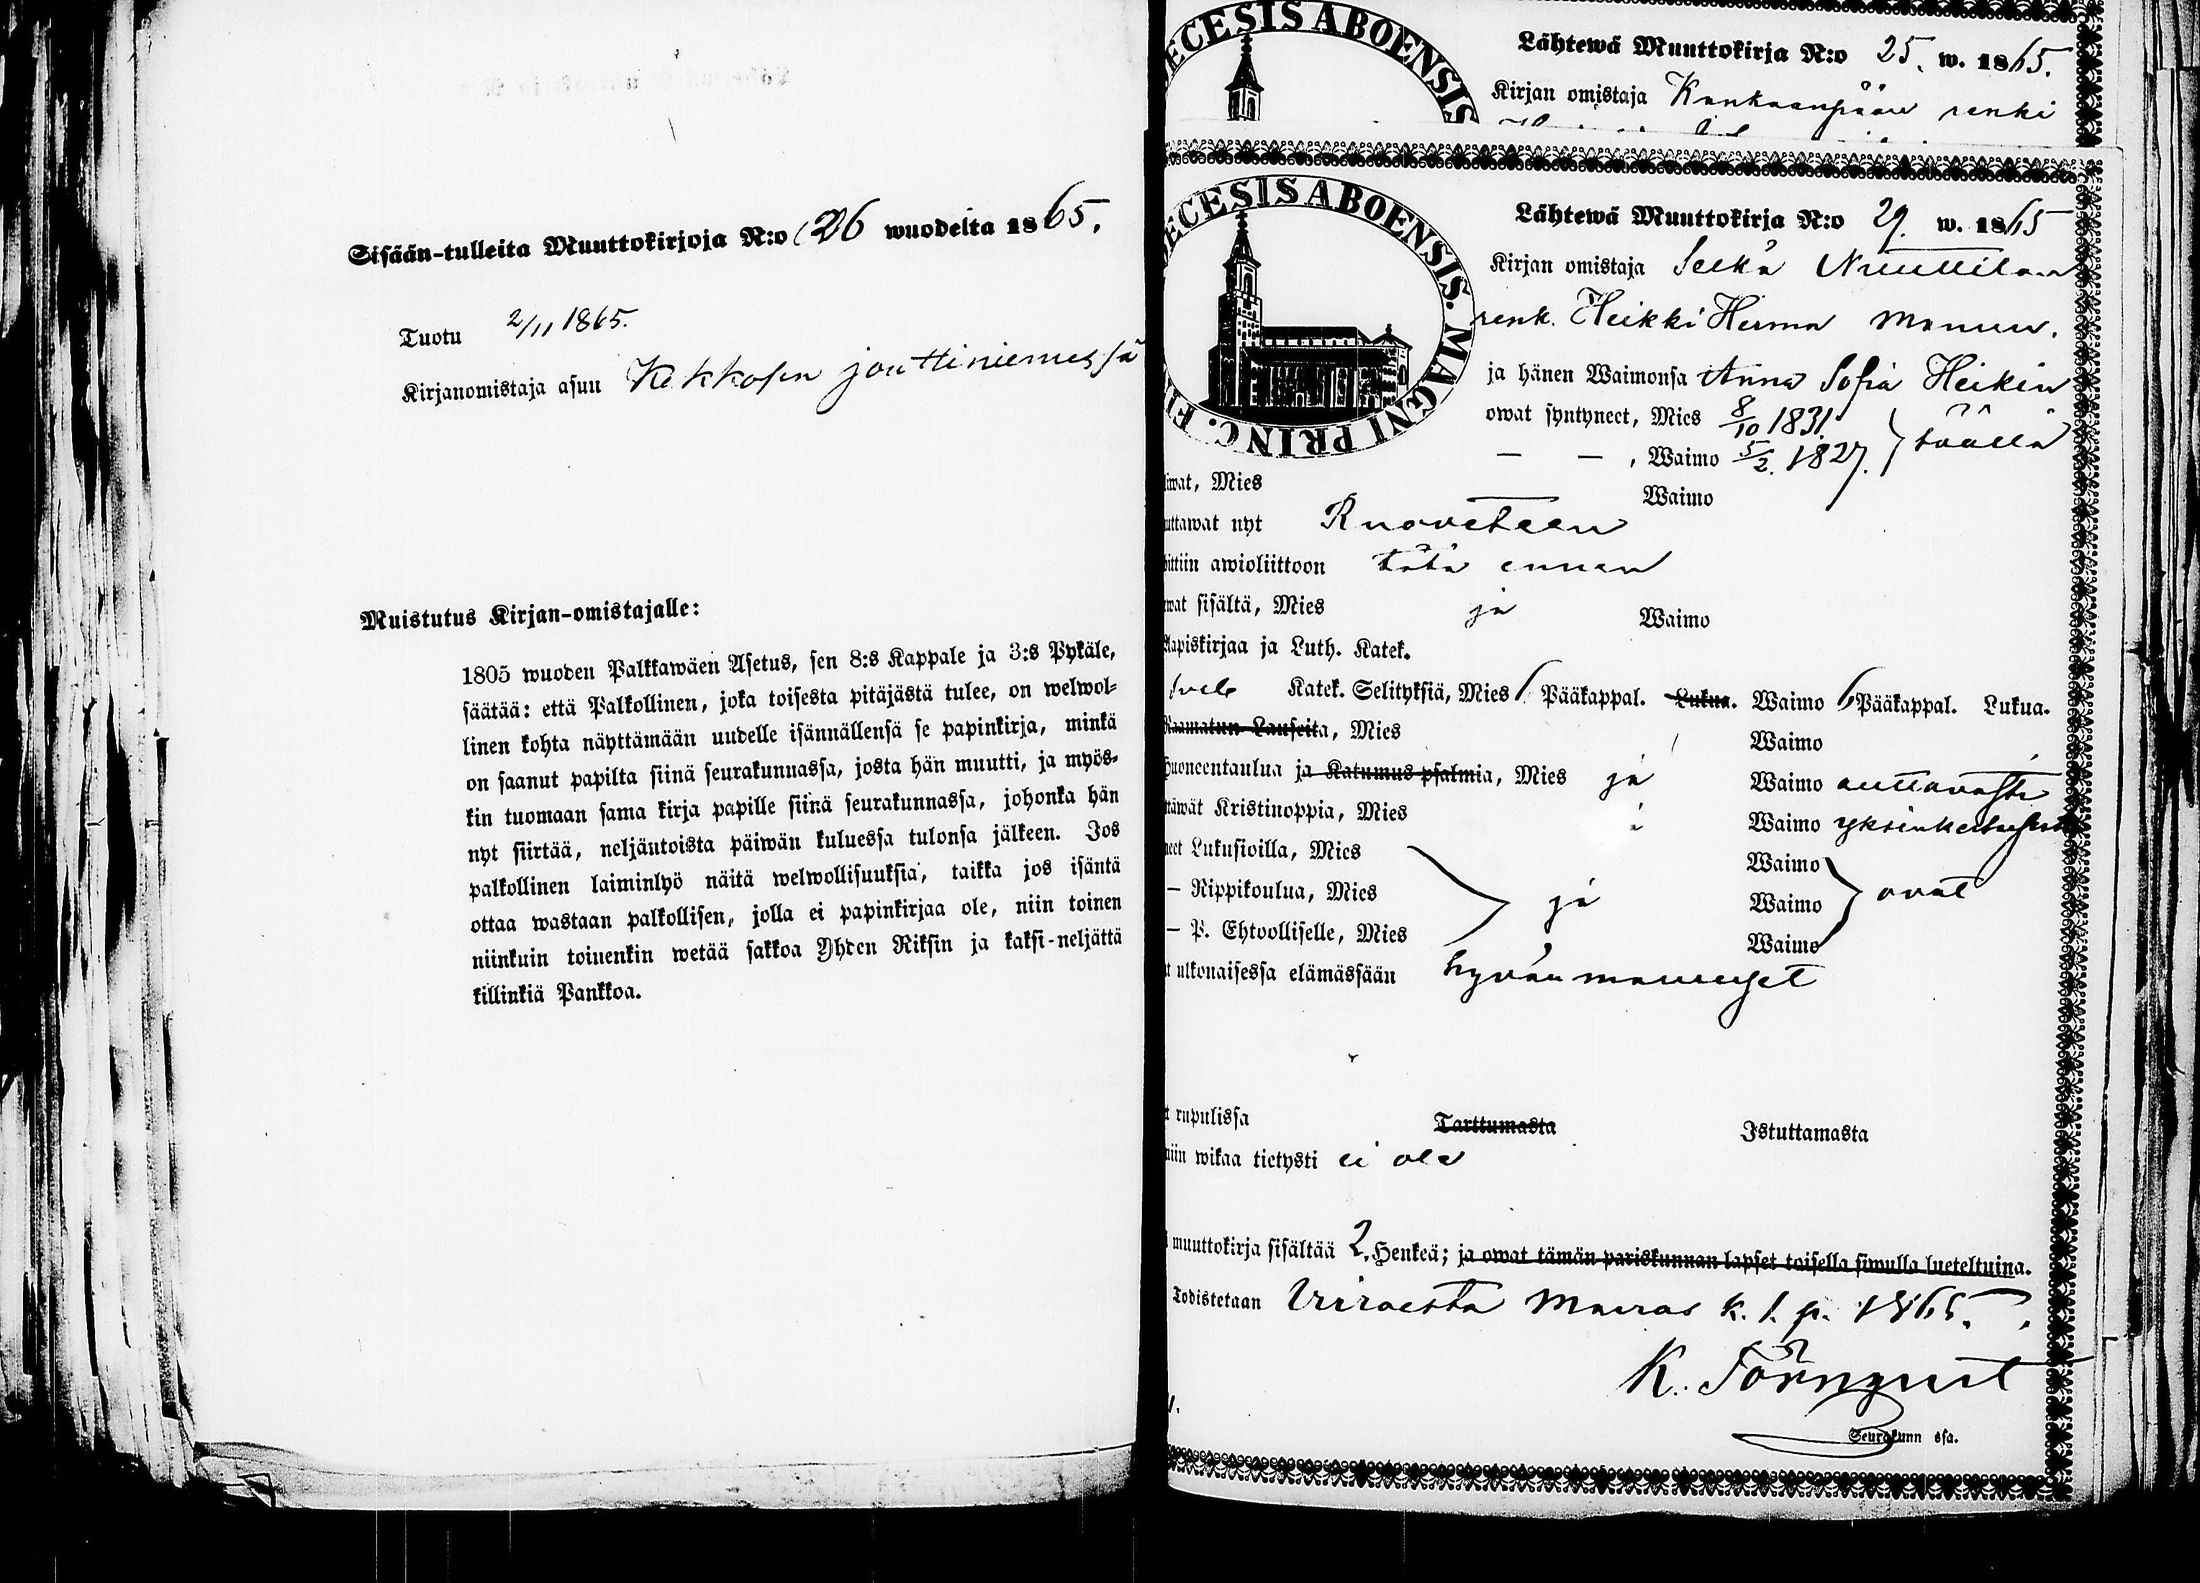 Sisään-tulleita Muuttokirjoja N:o 26 wuodelta 1865.
Tuotu 2/11 1865.
Kirjanomistaja asuu Kekkosen jouttiniemessä
Muistutus Kirjan-omistajalle:
1805 wuoden Palkkawäen Asetus, sen 8:s Kappale ja 3:s Pykäle,
säätää: että Palkollinen, joka toisesta pitäjästä tulee, on welwol-
linen kohta näyttämään uudelle isännällensä se papinkirja, minkä
on saanut papilta siinä seurakunnassa, josta hän muutti, ja myös-
kin tuomaan sama kirja papille siinä seurakunnassa, johonka hän
nyt siirtää, neljäntoista päiwän kuluessa tulonsa jälkeen. Jos
palkollinen laiminlyö näitä welwollisuuksia, taikka jos isäntä
ottaa wastaan palkollisen, jolla ei papinkirjaa ole, niin toinen
niinkuin toinenkin wetää sakkoa Yhden Riksin ja kaksi-neljättä
killinkiä Pankkoa.
ECESIS ABOENSIS
Lähtewä Muuttokirja N:o 25. w. 1865.
Kirjan omistaja Kankaanpään renki
ECESIS ABOENSIS. MAGNI PRINC. FI
Lähtewä Muuttokirja N:o 29. w. 1865
Kirjan omistaja Seckä Nuutilan
renk. Heikki Herma Manuu.
ja hänen Waimonsa Anna Sofia Heikin
owat syntyneet, Mies 8/10 1831 täällä
— — , Waimo 5/2. 1827.
iwat, Mies Waimo
uttawat nyt Ruoveteen
ittiin awioliittoon tätä ennen
wat sisältä, Mies ja Waimo
Aapiskirjaa ja Luth. Katek.
Katek. Selityksiä, Mies 6 Pääkappal. Lukua. Waimo 6 Pääkappal. Lukua.
Raamatun Lauseita, Mies Waimo
huoneentaulua ja Katumus psalmia, Mies ja Waimo auttavasti
täwät Kristinoppia, Mies Waimo
neet Lukusioilla, Mies Waimo
— Rippikoulua, Mies ja Waimo ovat
— P. Ehtoolliselle, Mies Waimo
t ulkonaisessa elämässään hyvän maineset
t rupulissa Tarttumasta Istuttamasta
niin wikaa tietysti ei ole
muuttokirja sisältää 2. Henkeä; ja owat tämän pariskunnan lapset toisella siwulla lueteltuina.
Todistetaan Virroesta Marras k. 1. p. 1865.
K. Törnqvist
Seurakunn ssa.